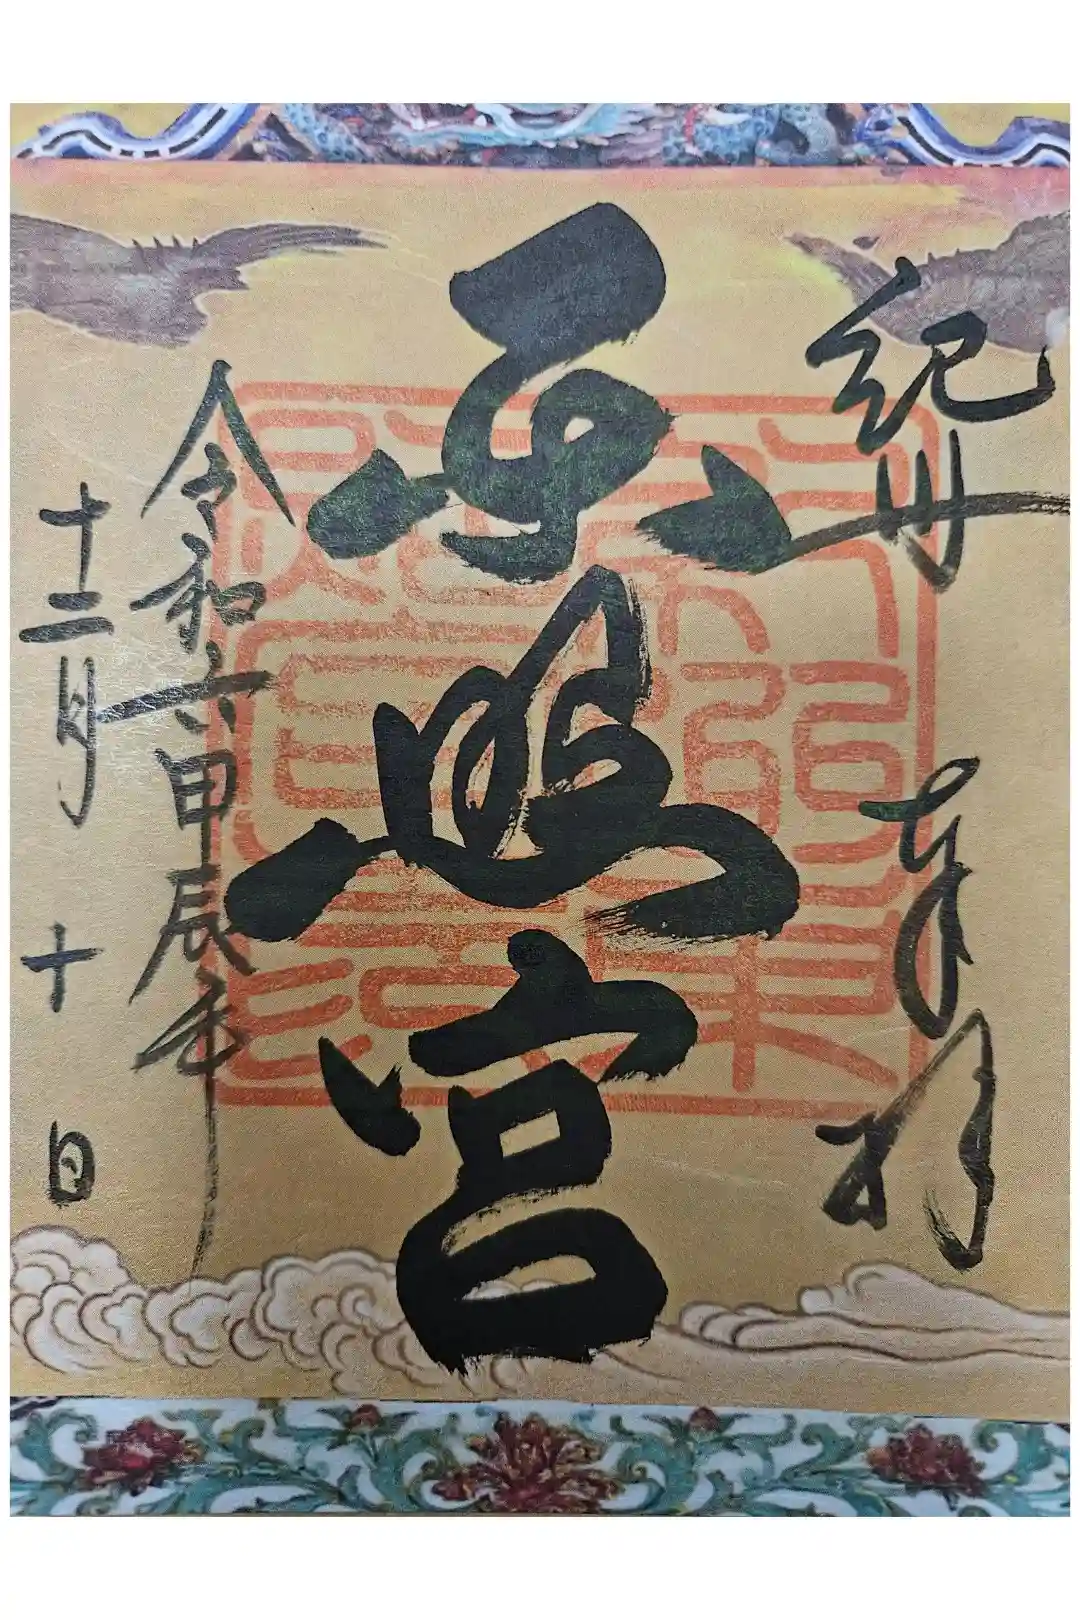 紀州
奉拝
東照宮
令和六甲辰年
十二月十日